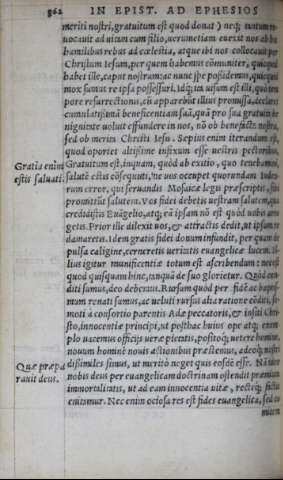 862 IN EPIST. AD EPHESIOS
meriti nostri, gratuitum est quod donat) neq; tantum re-
uocauit ad uitam cum filio, uerumetiam euexit nos ab his
humilibus rebus ad cœlestia, atque ibi nos collocauit per
Christum Iesum, per quem habemus cōmuniter, quicquid
habet ille, caput nostrum: ac nunc spe possidemus, quicquid
mox sumus re ipsa possessuri. Idq; ita uisum est illi, quò tem
pore resurrectionis, cū apparebūt illius promissa, declaret
cumulatissimā beneficentiam suā, quā pro sua gratuita be
nignitate uoluit effundere in nos, nō ob benefacta nostra,
sed ob merita Christi Iesu. Sepius enim iterandum est,
quod oportet altissime infixum esse uestris pectoribus,
Gratia enim
estis saluati.
Gratuitum est, inquam, quòd ab exitio, quo tenebamini,
salutē estis cōsequuti, ne uos occupet quorundam Iudeo-
rum error, qui seruandis Mosaicæ legis præscriptis, sibi
promittūt salutem. Vos fidei debetis uestram salutem, qua
credidistis Euāgelio, atq; eā ipsam nō est quòd uobis
getis. Prior ille dilexit uos, & attractis dedit, ut ipsum re
damaretis. Idem gratis fidei donum infundit, per quam de
pulsa caligine, cerneretis ueritatis euangelicæ lucem. Il-
lius igitur munificentiæ totum est ascribendum: nec est
quod quisquam hinc, tanquā de suo glorietur. Quòd con-
diti sumus, deo debemus. Rursum quòd per fidē ac baptis-
mum renati sumus, ac ueluti rursus alia ratione cōditi, se-
moti à consortio parentis Adæ peccatoris, & insiti Chri-
sto, innocentiæ principi, ut posthac huius ope atq; exem
plo uacemus officijs ueræ pietatis, positoq; uetere homine,
nouum hominē nouis actionibus præstemus, adeoq; nostri
Quæ præpa
rauit deus.
dissimiles simus, ut meritò neget quis eosdē esse. Nā uitæ
nobis deus per euangelicam doctrinam ostendit præmium
immortalitatis, ut ad eam innocentia uitæ, rectéq; factis
enitamur. Nec enim ociosa res est fides euangelica, sed co
mitem